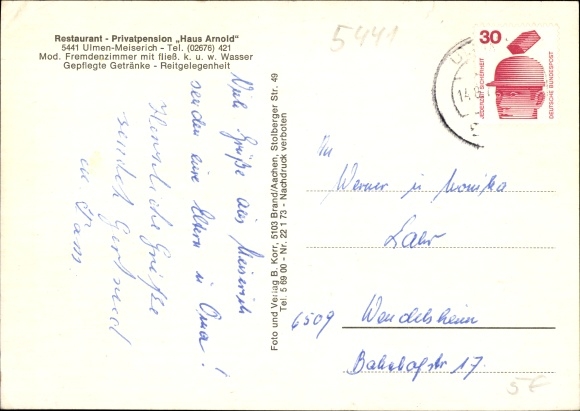 Restaurant - Privatpension „Haus Arnold"
5441 Ulmen-Meiserich - Tel. (02676) 421
Mod. Fremdenzimmer mit fließ. k. u. w. Wasser
Gepflegte Getränke - Reitgelegenheit
5441
30
JEDERZEIT SICHERHEIT
DEUTSCHE BUNDESPOST
14.
Viele Grüße aus Meiserich
senden eure Eltern u. Oma!
Herzliche Grüße
sendet Gertrud
u. Fam.
Foto und Verlag B. Korr, 5103 Brand/Aachen, Stolberger Str. 49
Tel. 5 69 00 - Nr. 22 1 73 - Nachdruck verboten
An
Werner u Monika
Lahr
6509 Wendelsheim
Bahnhofstr 17.
5€